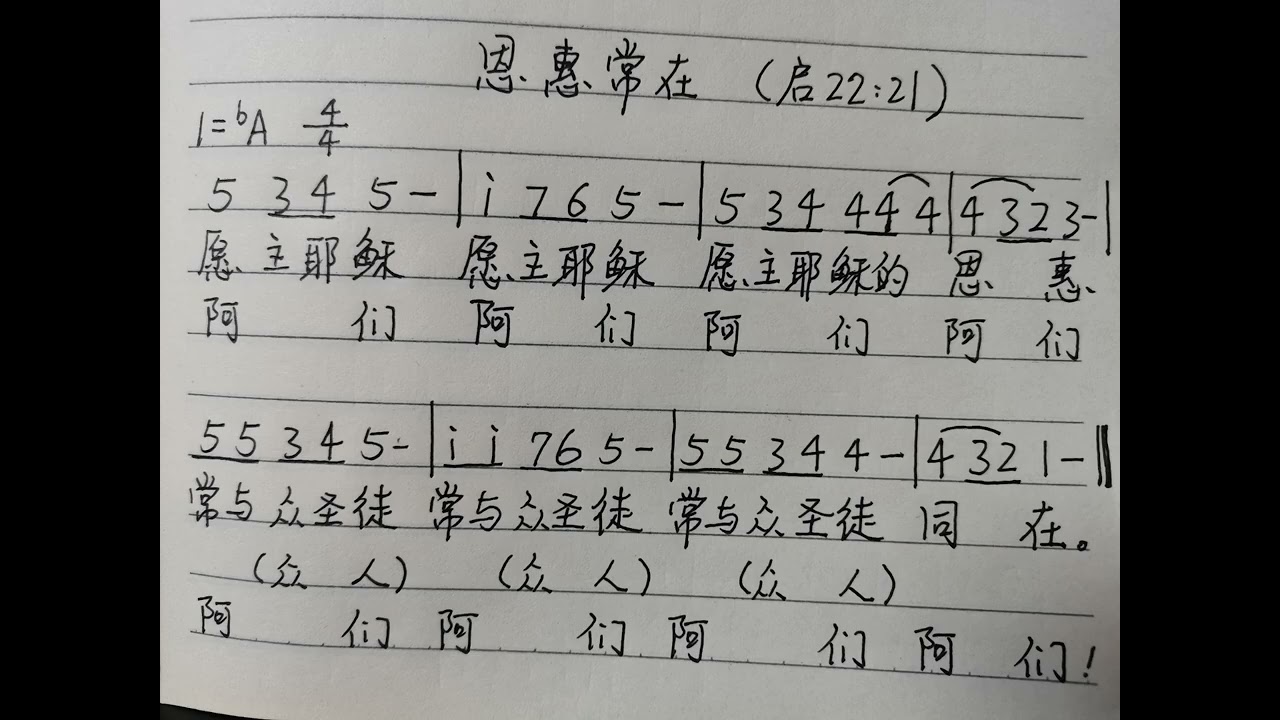 恩惠常在 (启22:21)
1=ᵇA 4/4
5 34 5 - | i 76 5 - | 5 34 44 4 | 4 32 3 - |
愿主耶稣 愿主耶稣 愿主耶稣的 恩 惠
阿 们 阿 们 阿 们 阿 们
55 34 5 - | i i 76 5 - | 55 34 4 - | 4 32 1 - ‖
常与众圣徒 常与众圣徒 常与众圣徒 同 在。
(众 人) (众 人) (众 人)
阿 们 阿 们 阿 们 阿 们!